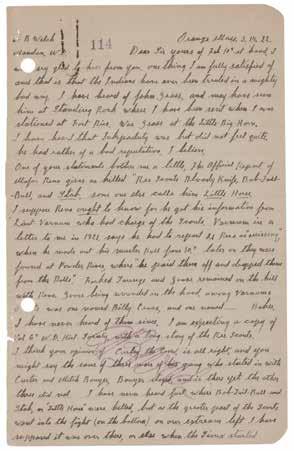 A B Welch Orange Mass. 3, 14, 22.
Mandan, N.D. 114
Dear Sir yours of Feb 10" at hand I
very glad to hear from you, one thing I am fully satisfied of
and that is that the Indians have ever been treated in a mighty
bad way. I have heard of John Grass, and may have seen
him at Standing Rock where I have been sent when I was
stationed at Fort Rice, Was Grass at the Little Big Horn,
I have heard that was but did not feel quite
he had rather of a bad reputation, I believe,
One of your statements bothers me a little, The Official Report of
Major Reno gives as killed "Ree Scouts Bloody Knife, Bob-Tail-
Bull and Stab, some one else calls him Little Horse
I suppose Reno ought to know for he got his information from
Lieut Varnum who had charge of the Scouts, Varnum in a
letter to me in 1921, says he had to report 21 Rees as "missing",
when he made out his muster Roll June 30," later on they were
found at Powder River, where "he paid them off and dropped them
from the Rolls". remained on the hill
with Reno, Goose being wounded in the hand, among Varnums
was one named Billy Cross, and one named Baker,
I have never heard of them since, I am expecting a copy of
Vol 6" N.D. Hist Society with a long story of the Ree Scouts.
I think your opinion of Curley the Crow, is all right, and you
might say the same of of his gang who started in with
Custer and Mitch Bouyer, Bouyer stayed and is there yet the other
three did not. I have never heard just where Bob-Tail-Bull and
Stab, or "Little Horse" were killed, but as the greater part of the Scouts
went into the fight (on the bottom) on our extreme left I have
supposed it was over there, or else when the Sioux started